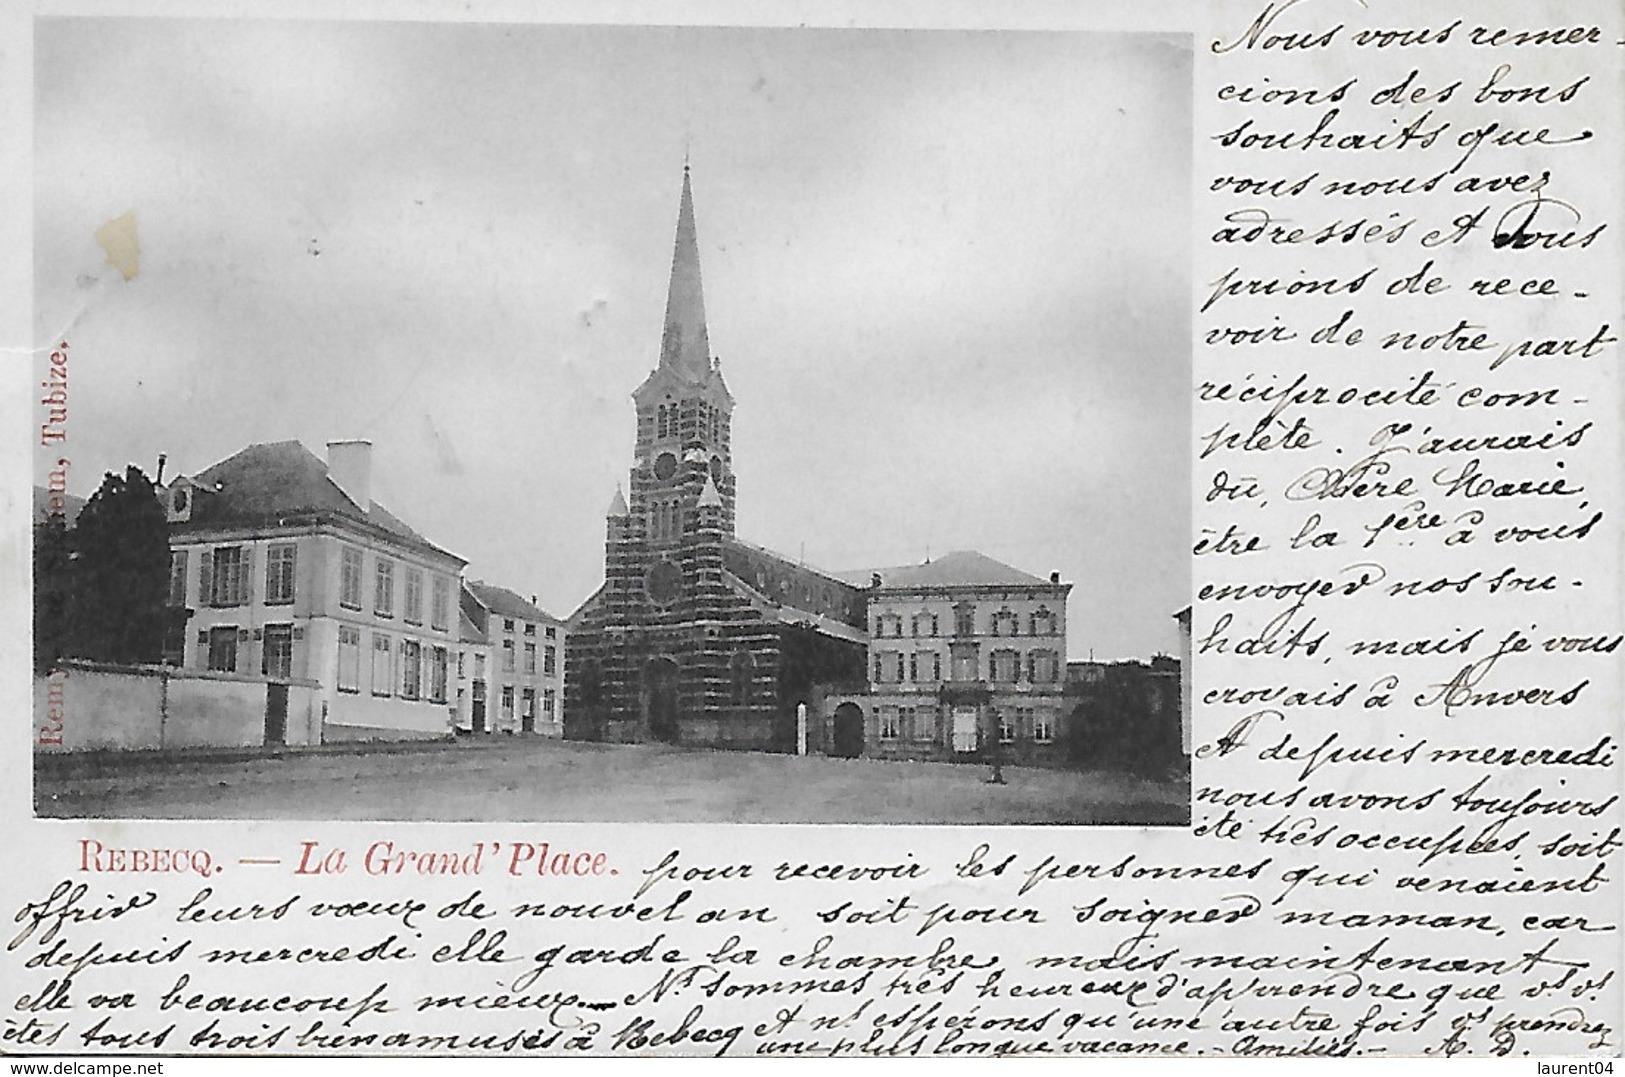 Nous vous remer-
cions des bons
souhaits que
vous nous avez
adressés et vous
prions de rece-
voir de notre part
réciprocité com-
plète. J'aurais
dû, Chère Marie,
être la 1ère à vous
envoyer nos sou-
haits, mais je vous
croyais à Anvers
et depuis mercredi
nous avons toujours
été très occupées, soit
pour recevoir les personnes qui venaient
offrir leurs vœux de nouvel an, soit pour soigner maman, car
depuis mercredi elle garde la chambre, mais maintenant
elle va beaucoup mieux. — Ns sommes très heureux d'apprendre que vs vs
êtes tous trois bien amusés à Rebecq et ns espérons qu'une autre fois vs prendrez
une plus longue vacance. — Amitiés. — A. D.
REBECQ. — La Grand' Place.
Remy, Tubize.
delcampe.net
laurent04